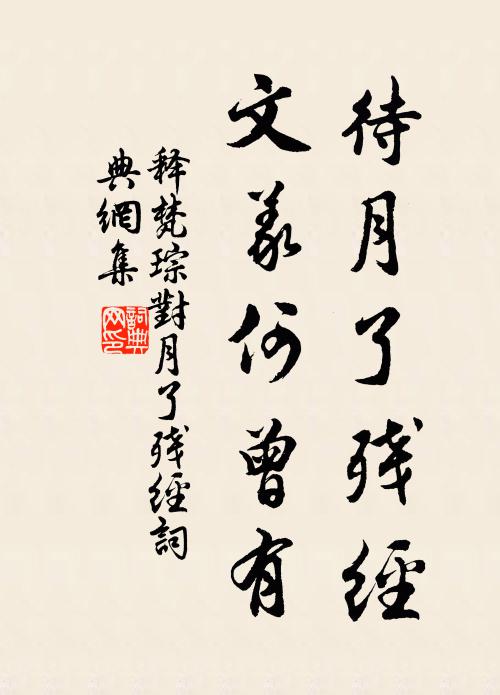 待月了残經
文義何曾有
释梵琮對月了残經詞
典網集
詞典
网印